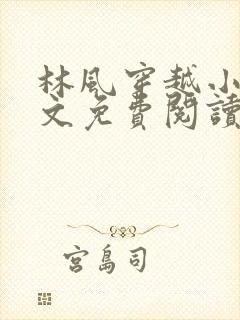 林風穿越小
文免費閱讀
宮島司